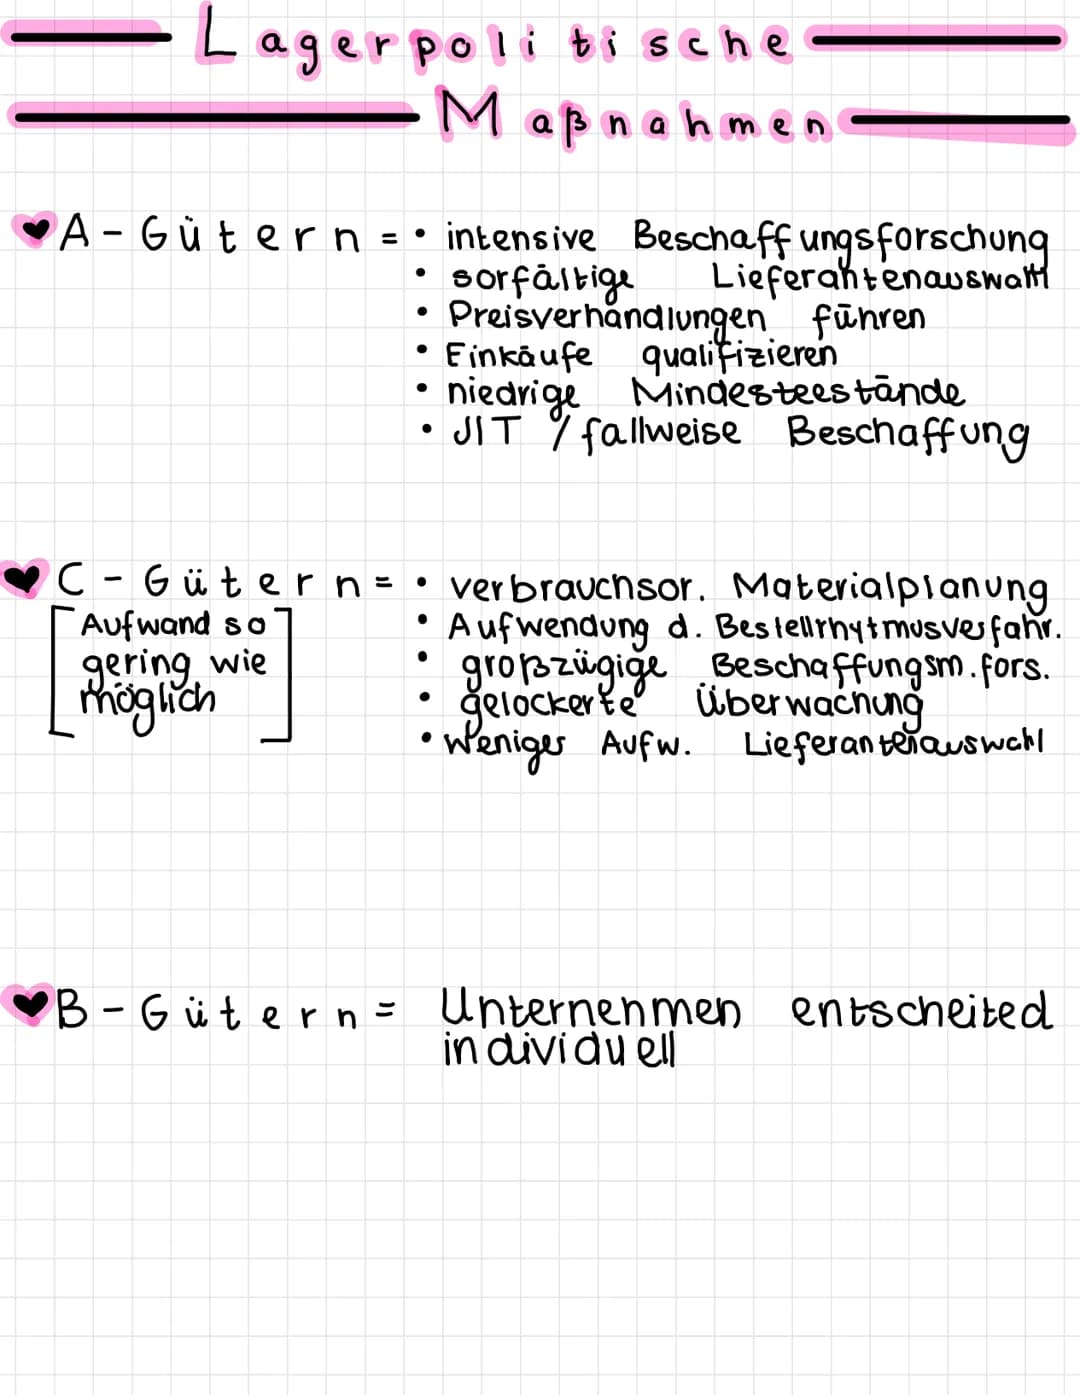 Lagerpolitische
Maßnahmen
A-Gütern = • intensive Beschaffungsforschung
• sorfältige Lieferantenauswahl
• Preisverhandlungen führen
• Einkäufe qualifizieren
• niedrige Mindesteestände
• JIT / fallweise Beschaffung
C-Gütern = • verbrauchsor. Materialplanung
[Aufwand so
gering wie
möglich]
• Aufwendung d. Bestellrhytmusverfahr.
• großzügige Beschaffungsm.fors.
• gelockerte Überwachung
• Weniger Aufw. Lieferantenauswahl
B-Gütern = Unternehmen entscheited
individuell